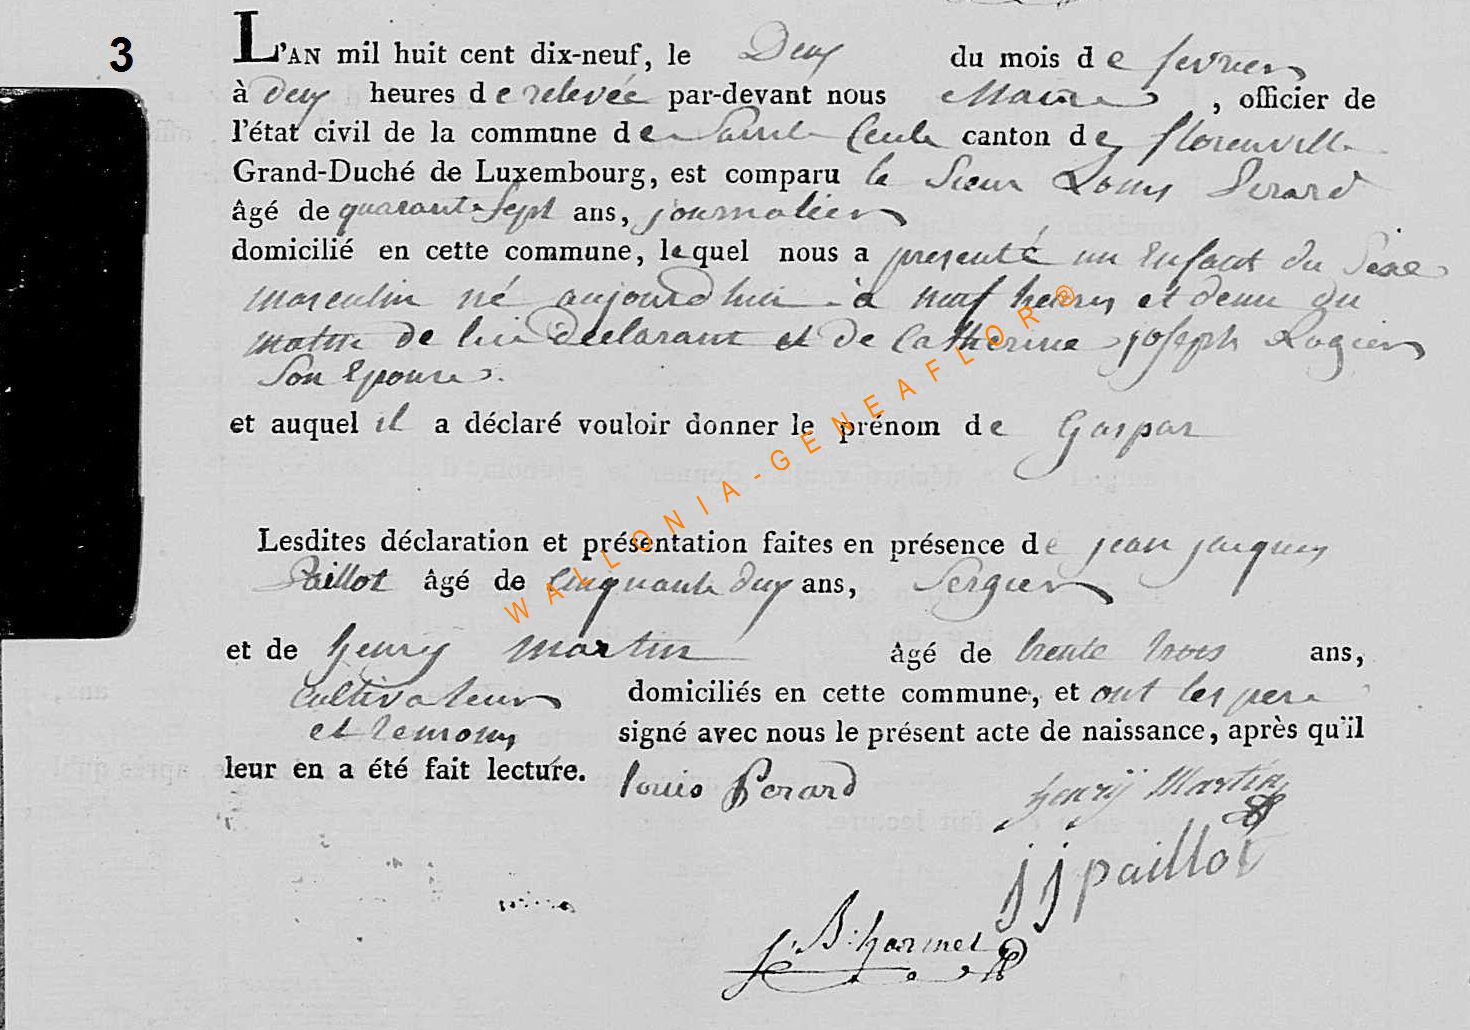 3
L'AN mil huit cent dix-neuf, le Deux du mois de fevrier
à deux heures de relevée par-devant nous Maire, officier de
l'état civil de la commune de Sainte Cecile canton de florenville
Grand-Duché de Luxembourg, est comparu le Sieur Louis Perard
âgé de quarante Sept ans, journalier
domicilié en cette commune, lequel nous a presenté un Enfant du Sexe
masculin né aujourdhui à neuf heures et demie du
matin de lui déclarant et de Catherine joseph Rogier
Son Epouse.
et auquel il a déclaré vouloir donner le prénom de Gaspar
Lesdites déclaration et présentation faites en présence de jean jacques
Paillot âgé de Cinquante deux ans, Sergier
et de henry martin âgé de trente trois ans,
cultivateur domiciliés en cette commune, et ont les pere
et temoins signé avec nous le présent acte de naissance, après qu'il
leur en a été fait lecture. louis Perard
henrÿ Martin
j j paillot
WALLONIA-GENEAFLOR®